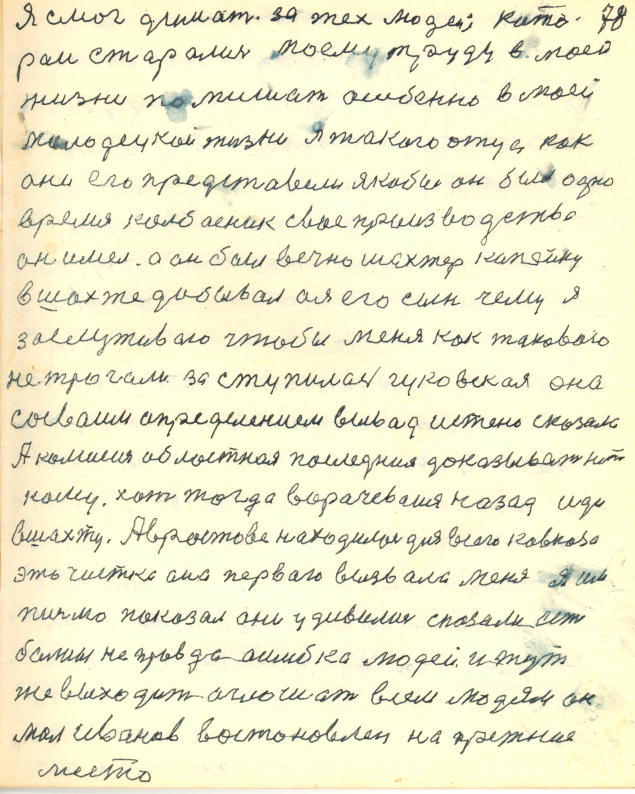 Я смог думат. за тех людей, кото- 78
раи старалия моему труду в моей
жизни помишат особенно в моей
молодецкой жизни Я такого отца как
они его представели якобы он был одно
время колбасник свое производство
он имел. а он был вечно шахтер капейку
в шахте добывал а я его сын чему я
заслуживаю чтобы меня как такового
не трогали заступилас чуковская она
своваим определением вывад истено сказала
А комисия областная последния доказыват нет
кому. хот тогда ворачеваия назад иди
в шахту. А вростове находилас для всего ковказа
это чистка она перваго вызвала меня я им
писмо показал они удивилия сказали ест
болши не правда ошибка людей. и тут
же выходит оглошает всем людям
мол иванов востоновлен на прежние
место